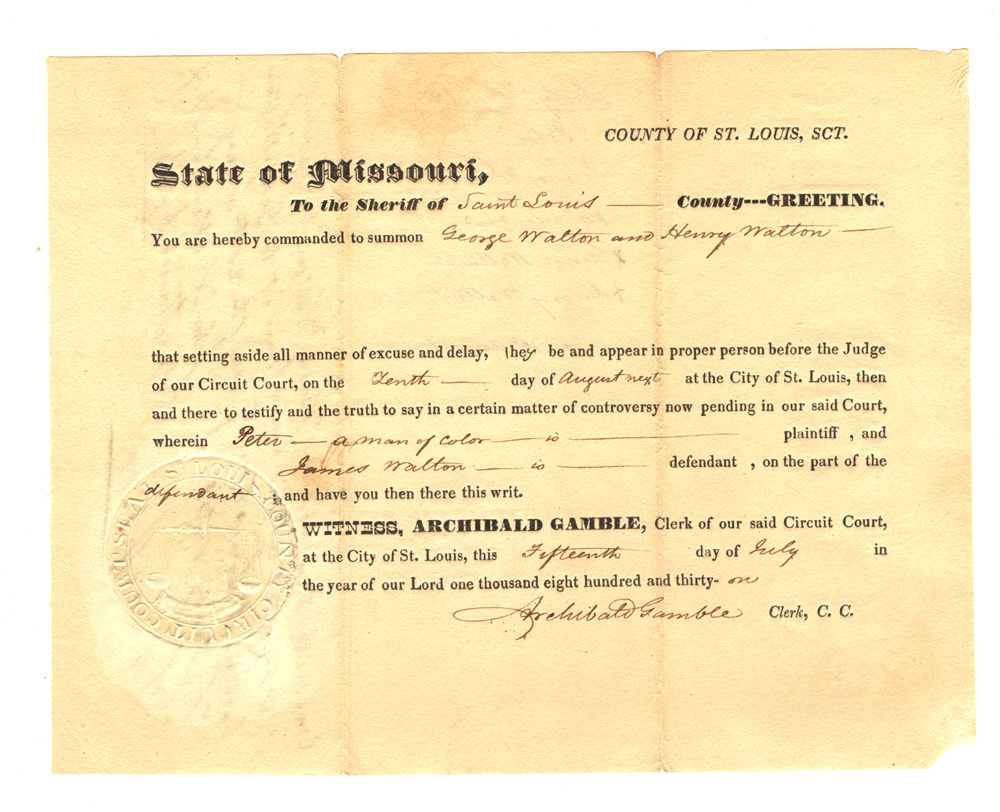 COUNTY OF ST. LOUIS, SCT.
State of Missouri,
To the Sheriff of Saint Louis — County---GREETING.
You are hereby commanded to summon George Walton and Henry Walton —
that setting aside all manner of excuse and delay, they be and appear in proper person before the Judge
of our Circuit Court, on the Tenth — day of August next at the City of St. Louis, then
and there to testify and the truth to say in a certain matter of controversy now pending in our said Court,
wherein Peter — a man of color — is — plaintiff , and
James Walton — is — defendant , on the part of the
defendant ; and have you then there this writ.
WITNESS, ARCHIBALD GAMBLE, Clerk of our said Circuit Court,
at the City of St. Louis, this Fifteenth day of July in
the year of our Lord one thousand eight hundred and thirty- on
Archibald Gamble Clerk, C. C.
ST LOUIS COUNTY CIRCUIT COURT SEAL